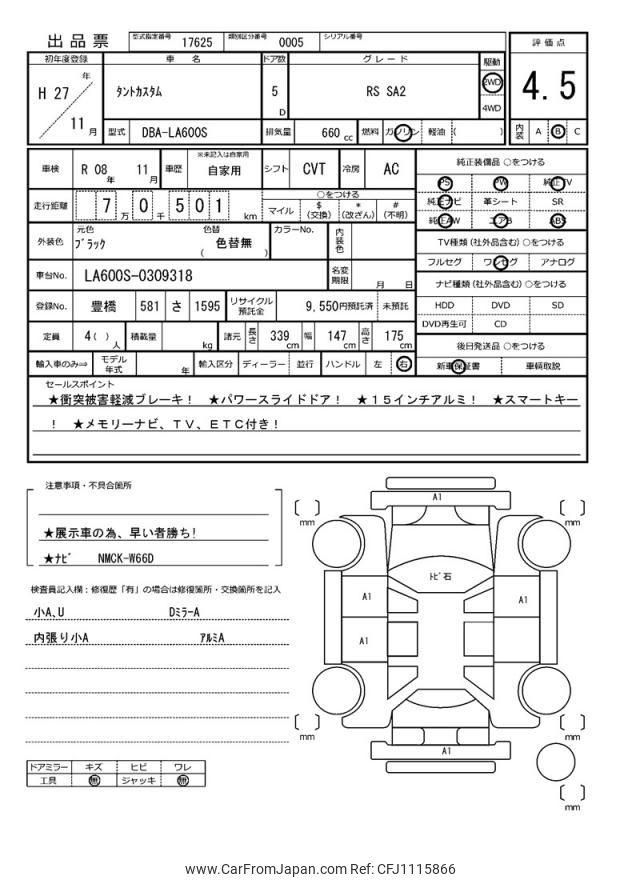 出品票 型式指定番号 17625 類別区分番号 0005 シリアル番号
初年度登録 車名 ドア数 グレード 駆動 評価点
H 27 年 11 月 タントカスタム 5 D RS SA2 2WD 4WD 4.5
型式 DBA-LA600S 排気量 660 cc 燃料 ガソリン 軽油 ( ) 内装 A B C
車検 R 08 年 11 月 車歴 ※未記入は自家用 自家用 シフト CVT 冷房 AC
純正装備品 ○をつける
PS PW 純正TV
純正ナビ 革シート SR
純正AW エアB ABS
走行距離 7 万 0 千 5 0 1 km ○をつける マイル $ (交換) * (改ざん) # (不明)
TV種類 (社外品含む) ○をつける
フルセグ ワンセグ アナログ
外装色 元色 ブラック 色替 ( 色替無 ) カラーNo. 内装色
車台No. LA600S-0309318 名変期限 月 日
ナビ種類 (社外品含む) ○をつける
HDD DVD SD
DVD再生可 CD
登録No. 豊橋 581 さ 1595 リサイクル預託金 9,550円預託済 未預託
定員 4 ( ) 人 積載量 kg 諸元 長さ 339 cm 幅 147 cm 高さ 175 cm
後日発送品 ○をつける
新車保証書 車輌取説
輸入車のみ⇒ モデル年式 年 輸入区分 ディーラー 並行 ハンドル 左 右
セールスポイント
★衝突被害軽減ブレーキ! ★パワースライドドア! ★15インチアルミ! ★スマートキー
! ★メモリーナビ、TV、ETC付き!
注意事項・不具合箇所
★展示車の為、早い者勝ち!
★ナビ NMCK-W66D
検査員記入欄：修復歴「有」の場合は修復箇所・交換箇所を記入
小A、U Dミラ-A
内張り小A アルミA
ドアミラー キズ ヒビ ワレ
工具 無 ジャッキ 無
A1
mm
mm
トビ石
A1
A1
A1
mm
mm
A1
mm
www.CarFromJapan.com Ref: CFJ1115866